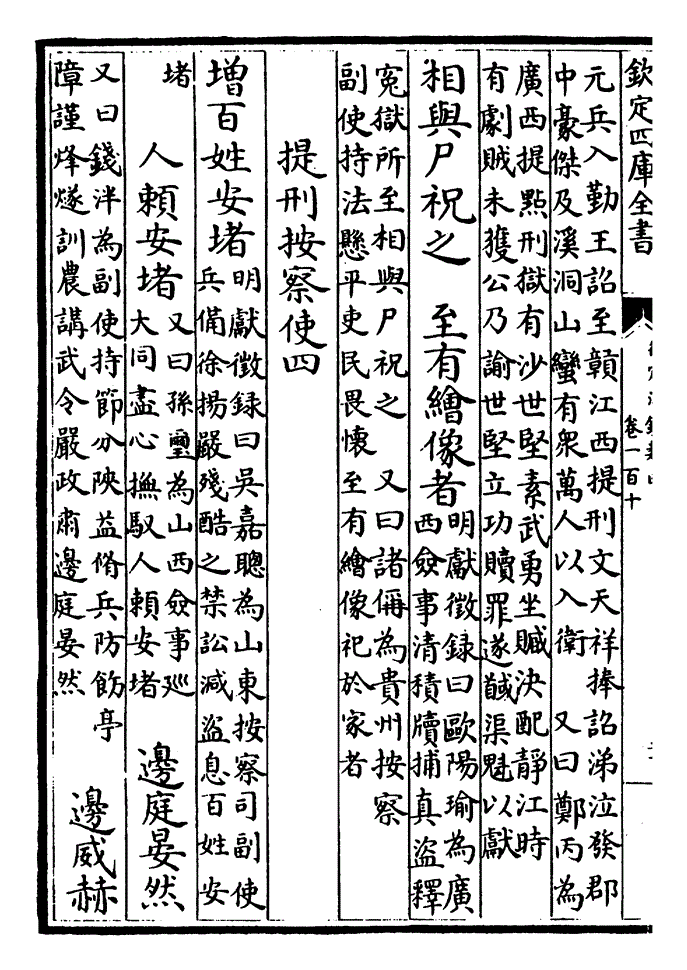 欽定四庫全書
卷一百十
元兵入勤王詔至贑江西提刑文天祥捧詔涕泣發郡
中豪傑及溪洞山蠻有衆萬人以入衛　又曰鄭丙為
廣西提㸃刑獄有沙世堅素武勇坐贓決配靜江時
有劇賊未獲公乃諭世堅立功贖罪遂馘渠魁以獻
相與尸祝之　至有繪像者
明獻徵録曰歐陽瑜為廣
西僉事清積牘捕真盜釋
冤獄所至相與尸祝之　又曰諸偁為貴州按察
副使持法懸平吏民畏懷至有繪像祀於家者
提刑按察使四
增百姓安堵
明獻徵録曰吳嘉聰為山東按察司副使
兵備徐揚嚴殘酷之禁訟減盜息百姓安
堵
人頼安堵
又曰孫璽為山西僉事廵
大同盡心撫馭人頼安堵
邊庭晏然
又曰錢泮為副使持節分陜益脩兵防飭亭
障謹烽燧訓農講武令嚴政肅邊庭晏然
邊威赫